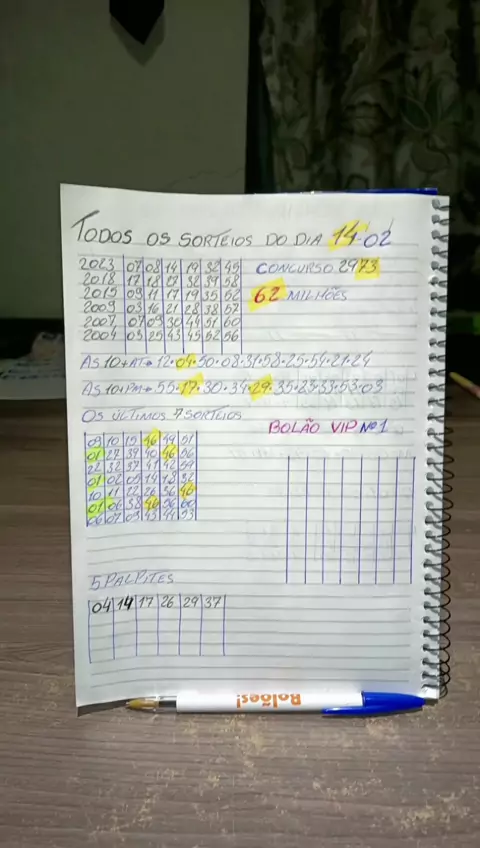 TODOS OS SORTEIOS DO DIA 14-02
2023 07 08 14 19 32 45
CONCURSO 2973
2018 17 18 38 39 58
2015 09 11 17 19 35 52
62 MILHÕES
2009 03 16 21 28 38 57
2007 07 09 30 44 51 60
2004 03 25 43 45 52 56
AS 10+AT→ 12.04.50.08.31.58.25.54.21.24
AS 10+PM→ 55.17.30.34.29.35.23.33.53.03
OS ÚLTIMOS 7 SORTEIOS
BOLÃO VIP Nº1
09 10 15 46 49 51
01 27 39 40 46 56
22 32 37 41 42 59
01 02 05 14 18 32
10 11 22 26 36 46
01 06 38 46 56 60
06 07 09 43 44 53
5 PALPITES
04 14 17 26 29 37
Bolões!